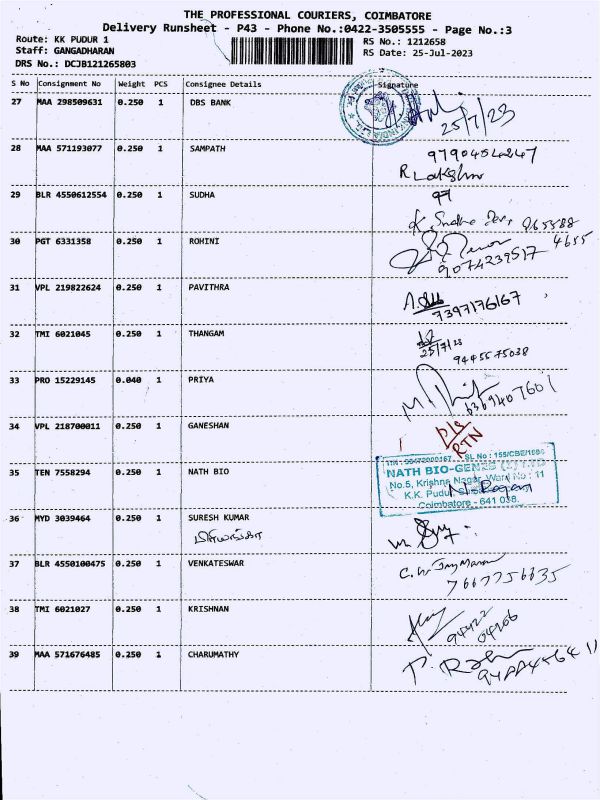 THE PROFESSIONAL COURIERS, COIMBATORE
Delivery Runsheet - P43 - Phone No.:0422-3505555 - Page No.:3
Route: KK PUDUR 1 RS No.: 1212658
Staff: GANGADHARAN RS Date: 25-Jul-2023
DRS No.: DCJB121265803
S No Consignment No Weight PCS Consignee Details Signature
27 MAA 298509631 0.250 1 DBS BANK
25/7/23
28 MAA 571193077 0.250 1 SAMPATH
R Lakshmi
29 BLR 4550612554 0.250 1 SUDHA
K. Sudha Devi
30 PGT 6331358 0.250 1 ROHINI
9074239517
31 VPL 219822624 0.250 1 PAVITHRA
7397176167
32 TMI 6021045 0.250 1 THANGAM
25/7/23
9445575038
33 PRO 15229145 0.040 1 PRIYA
34 VPL 218700011 0.250 1 GANESHAN
RTN
35 TEN 7558294 0.250 1 NATH BIO
NATH BIO-GENES (I) LTD
No.5, Krishna Nagar, Ward No : 11
K.K. Pudur,
Coimbatore - 641 038.
36 MYD 3039464 0.250 1 SURESH KUMAR
37 BLR 4550100475 0.250 1 VENKATESWAR
7667756635
38 TMI 6021027 0.250 1 KRISHNAN
39 MAA 571676485 0.250 1 CHARUMATHY